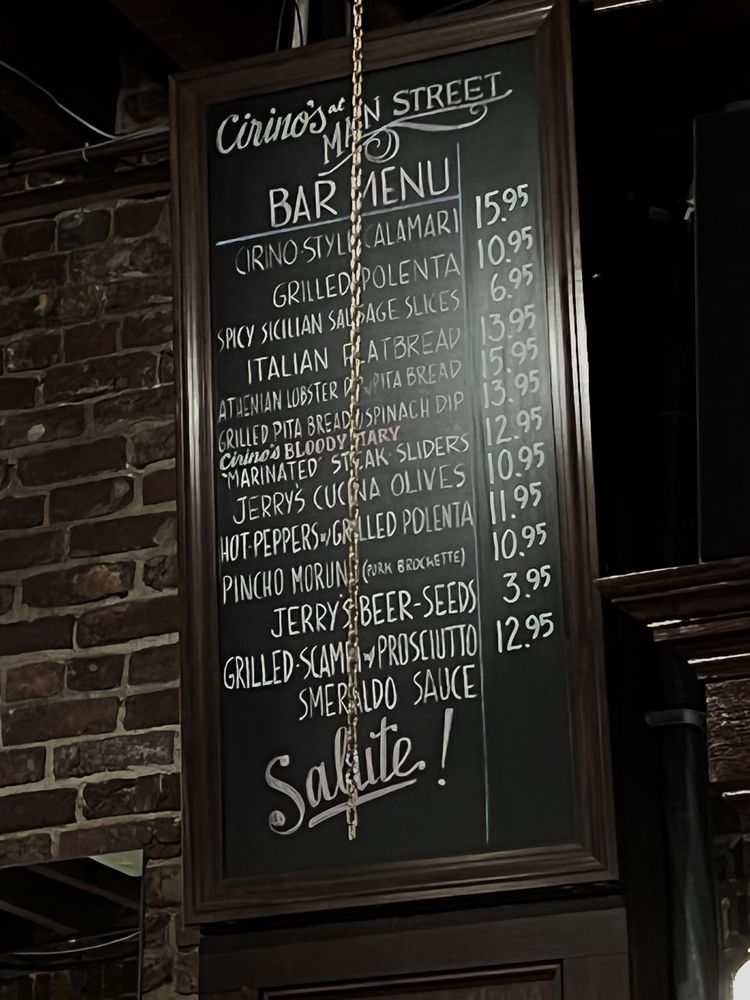 Cirino's at
MAIN STREET
BAR MENU
CIRINO-STYLE CALAMARI 15.95
GRILLED POLENTA 10.95
SPICY SICILIAN SAUSAGE SLICES 6.95
ITALIAN FLATBREAD 13.95
ATHENIAN LOBSTER DIP w/PITA BREAD 15.95
GRILLED PITA BREAD/SPINACH DIP 13.95
Cirino's BLOODY MARY
"MARINATED" STEAK SLIDERS 12.95
JERRY'S CUCINA OLIVES 10.95
HOT-PEPPERS w/GRILLED POLENTA 11.95
PINCHO MORUNO (PORK BROCHETTE) 10.95
JERRY'S BEER-SEEDS 3.95
GRILLED-SCAMPI w/PROSCIUTTO 12.95
SMERALDO SAUCE
Salute!